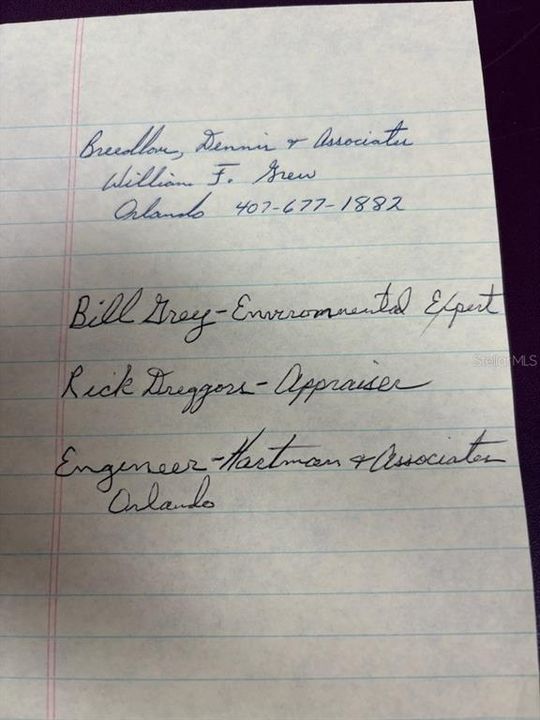 Breedlove, Dennis & Associates
William F. Grew
Orlando 407-677-1882
Bill Grey-Environmental Expert
StellarMLS
Rick Dreggors- Appraiser
Engineer-Hartman & Associates
Orlando